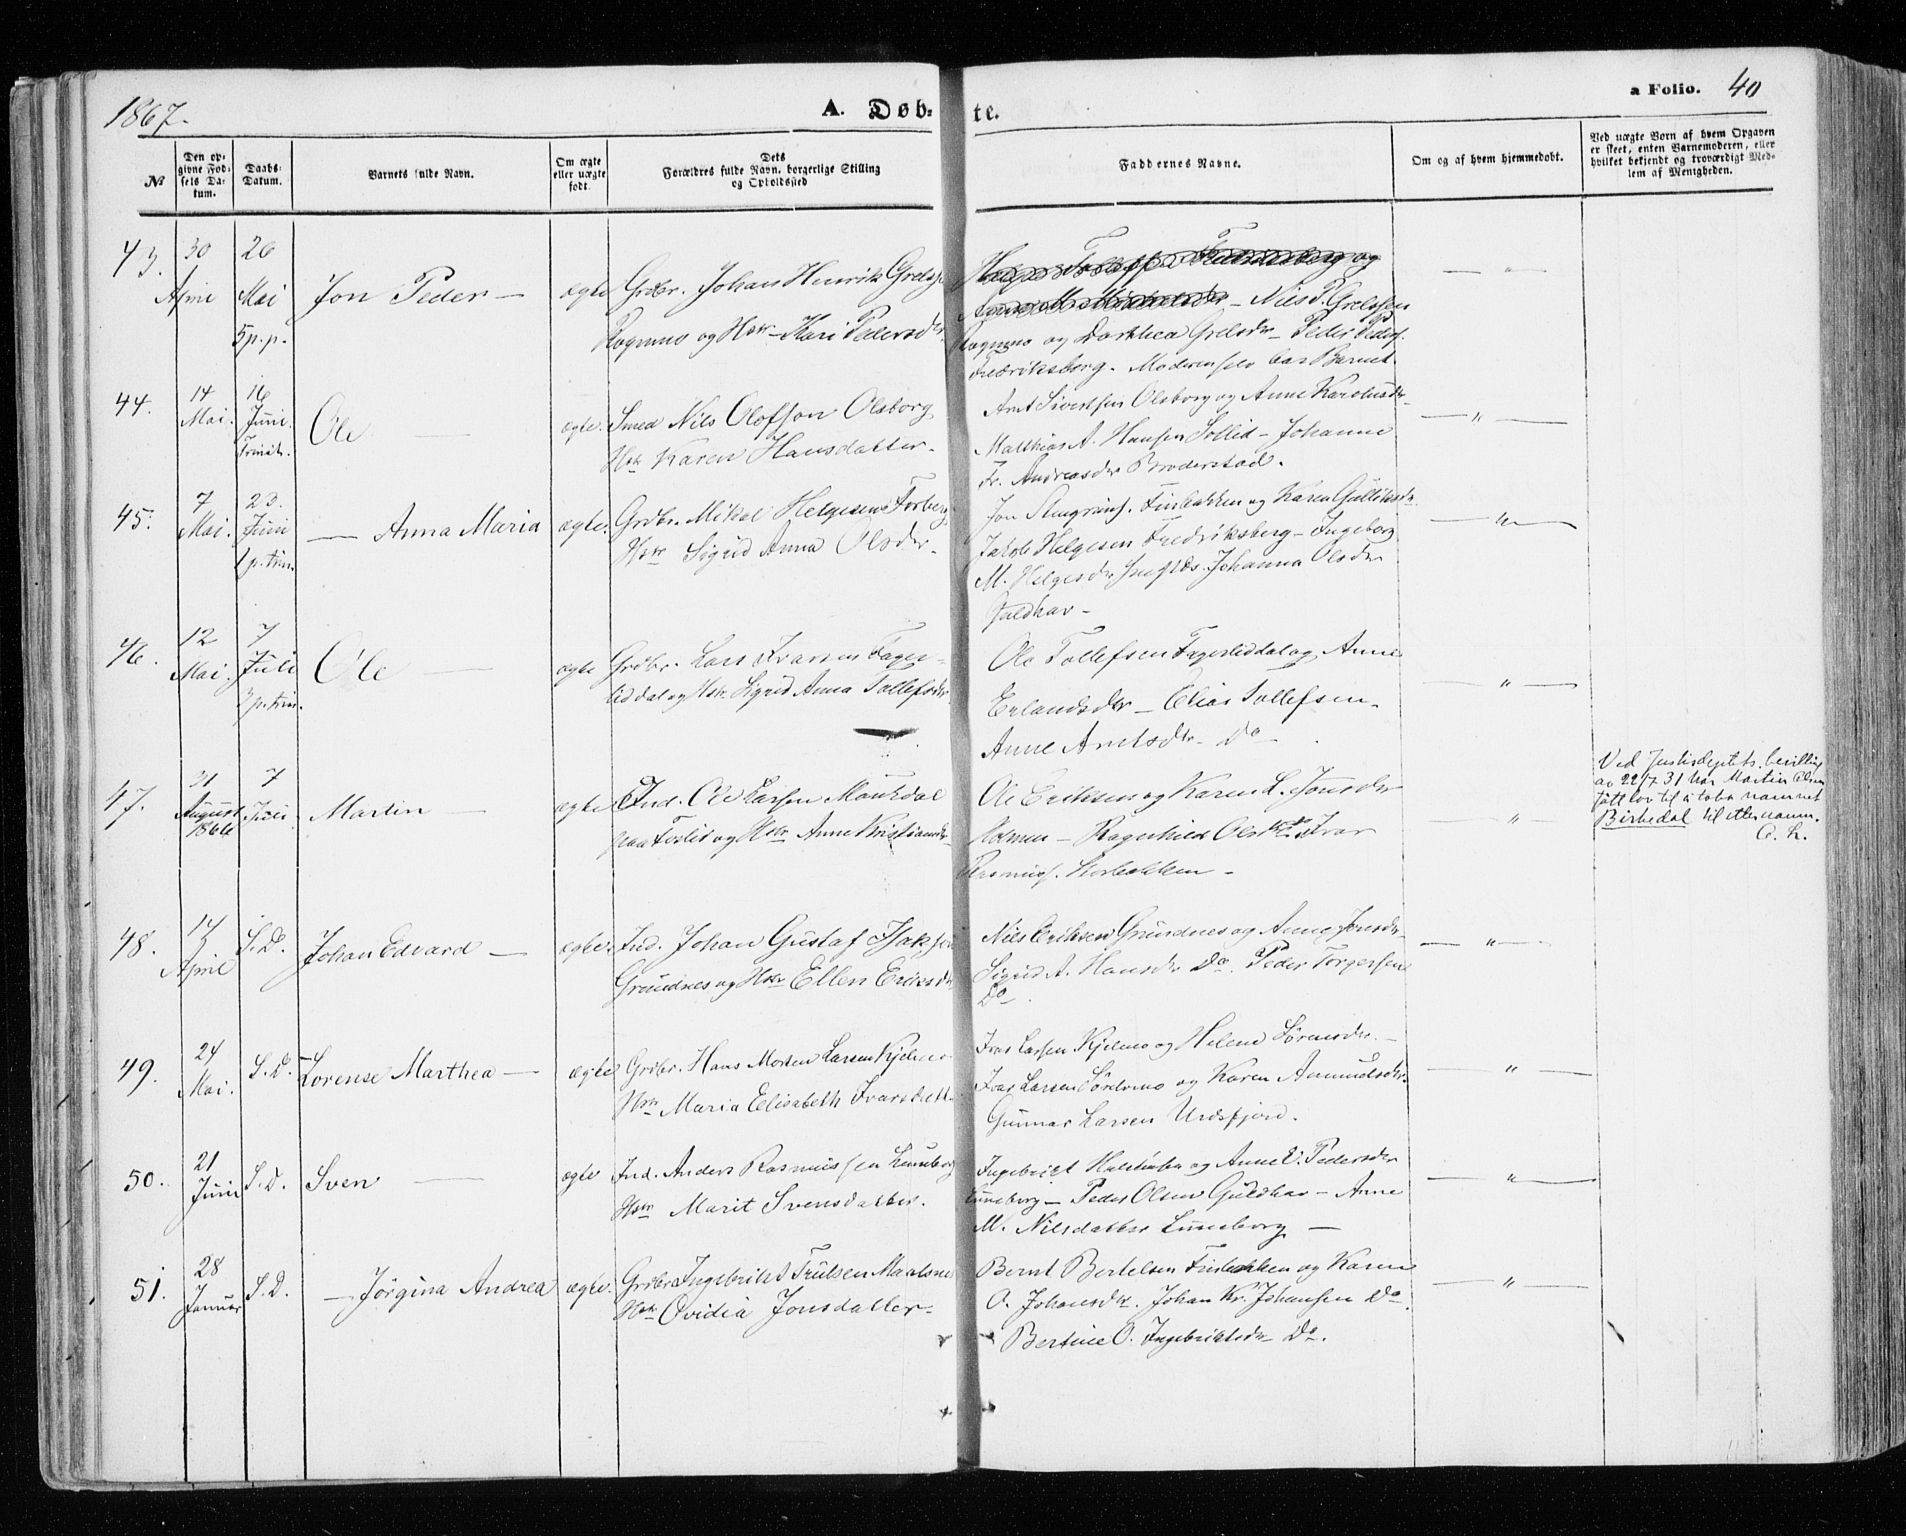 1867.
A. Døb-
te.
a Folio. 40
No
Den op-
givne Fød-
sels Da-
tum.
Daabs-
Datum.
Barnets fulde Navn.
Om ægte
eller uægte
født.
Dets
Forældres fulde Navn, borgerlige Stilling
og Opholdssted
Faddernes Navne.
Om og af hvem hjemmedøbt.
Ved uægte Børn af hvem Opgaven
er skeet, enten Barnemoderen, eller
hvilket bekjendt og troværdigt Med-
lem af Menigheden.
43. 30 April 26 Mai 5 p.p. Jon Peder — ægte Grdbr. Johan Henrik Grelss
Rognmo og Hstr. Kari Pedersdr.
Nils P. Grelssen
Rognmo og Dorthea Grelsdr — Peder Peders.
Fredriksberg. Moderen selv bar Barnet.
— " —
44. 14 Mai. 16 Juni. Trinit. Ole — ægte. Smed Nils Olofson Olsborg
Hstr Karen Hansdatter.
Arnt Sivertsen Olsborg og Anne Karolusdr.
Matthias A. Hansen Sollid — Johanne
Fr. Andreasdr Broderstad.
— " —
45. 7 Mai. 23. Juni 1 p. trin. — Anna Maria ægte. Grdbr. Mikal Helgesen Forberg
Hstr Sigrid Anna Olsdr.
Finbakken og Karen
Jakob Helgesen Fredriksberg — Ingeborg
M. Helgesdr Johanna Olsdr
Guldhav —
— " —
46. 12 Mai. 7 Juli 3 p. trin. Ole — ægte Grdbr. Lars Ivarsen Fager-
liddal og Hstr. Sigrid Anna Tollefsdr
Ole Tollefsen Fagerliddal og Anne
Erlandsdr — Elias Tollefsen.
Anne Arntsdr. Do
— " —
47. 31 August 1866 7 Juli Martin — ægte Ind. Ole Larsen Maukdal
paa Foslid og Hstr Anne Kristiansdr
Ole Eriksen og Karen L. Jonsdr
Holmen — Ragnhild Olsdr. Ivar
Rasmuss. Storbakken —
— " —
Ved Justisdeptets bevilling
av 22/7 31 har Martin Olsen
fått lov til å taba navnet
Birkedal til etternavn.
48. 14 April S.D. Johan Edvard — ægte. Ind. Johan Gustaf Isaksen
Grundnes og Hstr Ellen Eriksdr
Nils Eriksen Grundnes og Anne Jonsdr
Sigrid A. Hansdr Do. Peder Torgersen
Do.
— " —
49. 24 Mai. S.D. Lorense Marthea — ægte Grdbr. Hans Morten Larsen Kjelmo
Hstr Maria Elisabeth Ivarsdatt.
Ivar Larsen Kjelmo og Helene Sørensdr. —
Ivar Larsen og Karen Amundsdr.
Gunnar Larsen Ursfjord.
— " —
50. 21 Juni S.D. Sven — ægte Ind. Anders Rasmussen Luneborg
Hstr Marit Svensdatter.
Ingebrigt og Anne E. Pedersdr
Luneborg — Peder Olsen Guldhav — Anne
M. Nilsdatter Luneborg —
— " —
51. 28 Januar S.D. — Jørgina Andrea ægte. Grdbr Ingebrikt Trulsen Maalsnes
Hstr Ovidia Jonsdatter.
Bernt Bertelsen Finbakken og Karen
O. Johansdtr. Johan Kr. Johansen Do.
Bertine O. Ingebriktsdr Do.
— " —